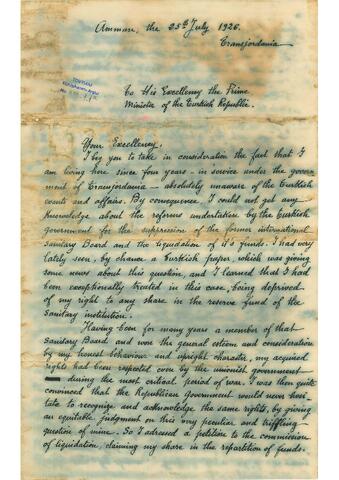 Amman, the 25th July 1926.
Transjordania
To His Excellency the Prime
Minister of the Turkish Republic.
Your Excellency,
I beg you to take in consideration the fact that I
am living here since four years - in service under the govern
ment of Transjordania - absolutely unaware of the Turkish
events and affairs. By consequence I could not get any
knowledge about the reforms undertaken by the Turkish
government for the suppression of the former international
Sanitary Board and the liquidation of it's funds. I had very
lately seen, by chance a Turkish paper, which was giving
some news about this question, and I learned that I had
been exceptionally treated in this case, being deprived
of my right to any share in the reserve fund of the
Sanitary institution.
Having been for many years a member of that
Sanitary Board and won the general esteem and consideration
by my honest behaviour and upright character, my acquired
rights had been respected even by the unionist government
during the most critical period of war. I was then quite
convinced that the Republican Government would never hesi-
tate to recognize and acknowledge the same rights, by giving
an equitable judgment on this very peculiar and triffling
question of mine. So I adressed a petition to the commission
of liquidation, claiming my share in the repartition of funds.